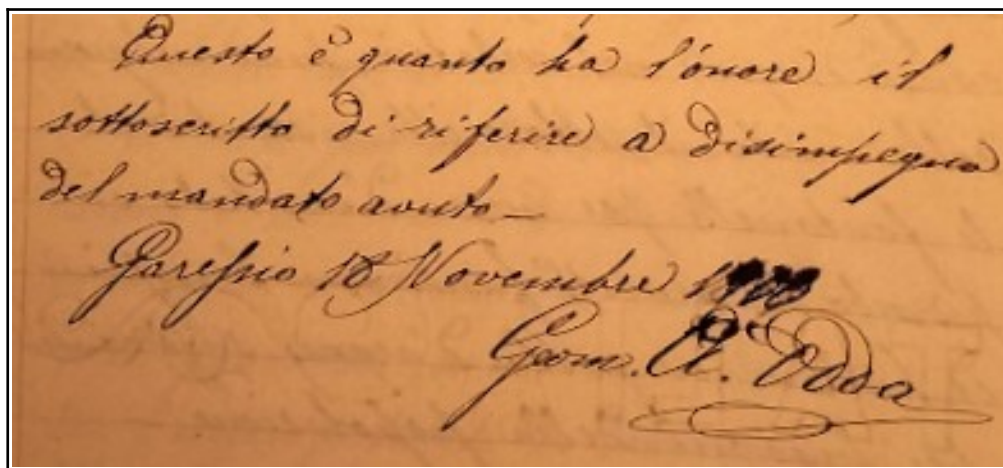 Questo è quanto ha l'onore il
sottoscritto di riferire a disimpegno
del mandato avuto_
Garessio 18 Novembre
Geom. A. Odda